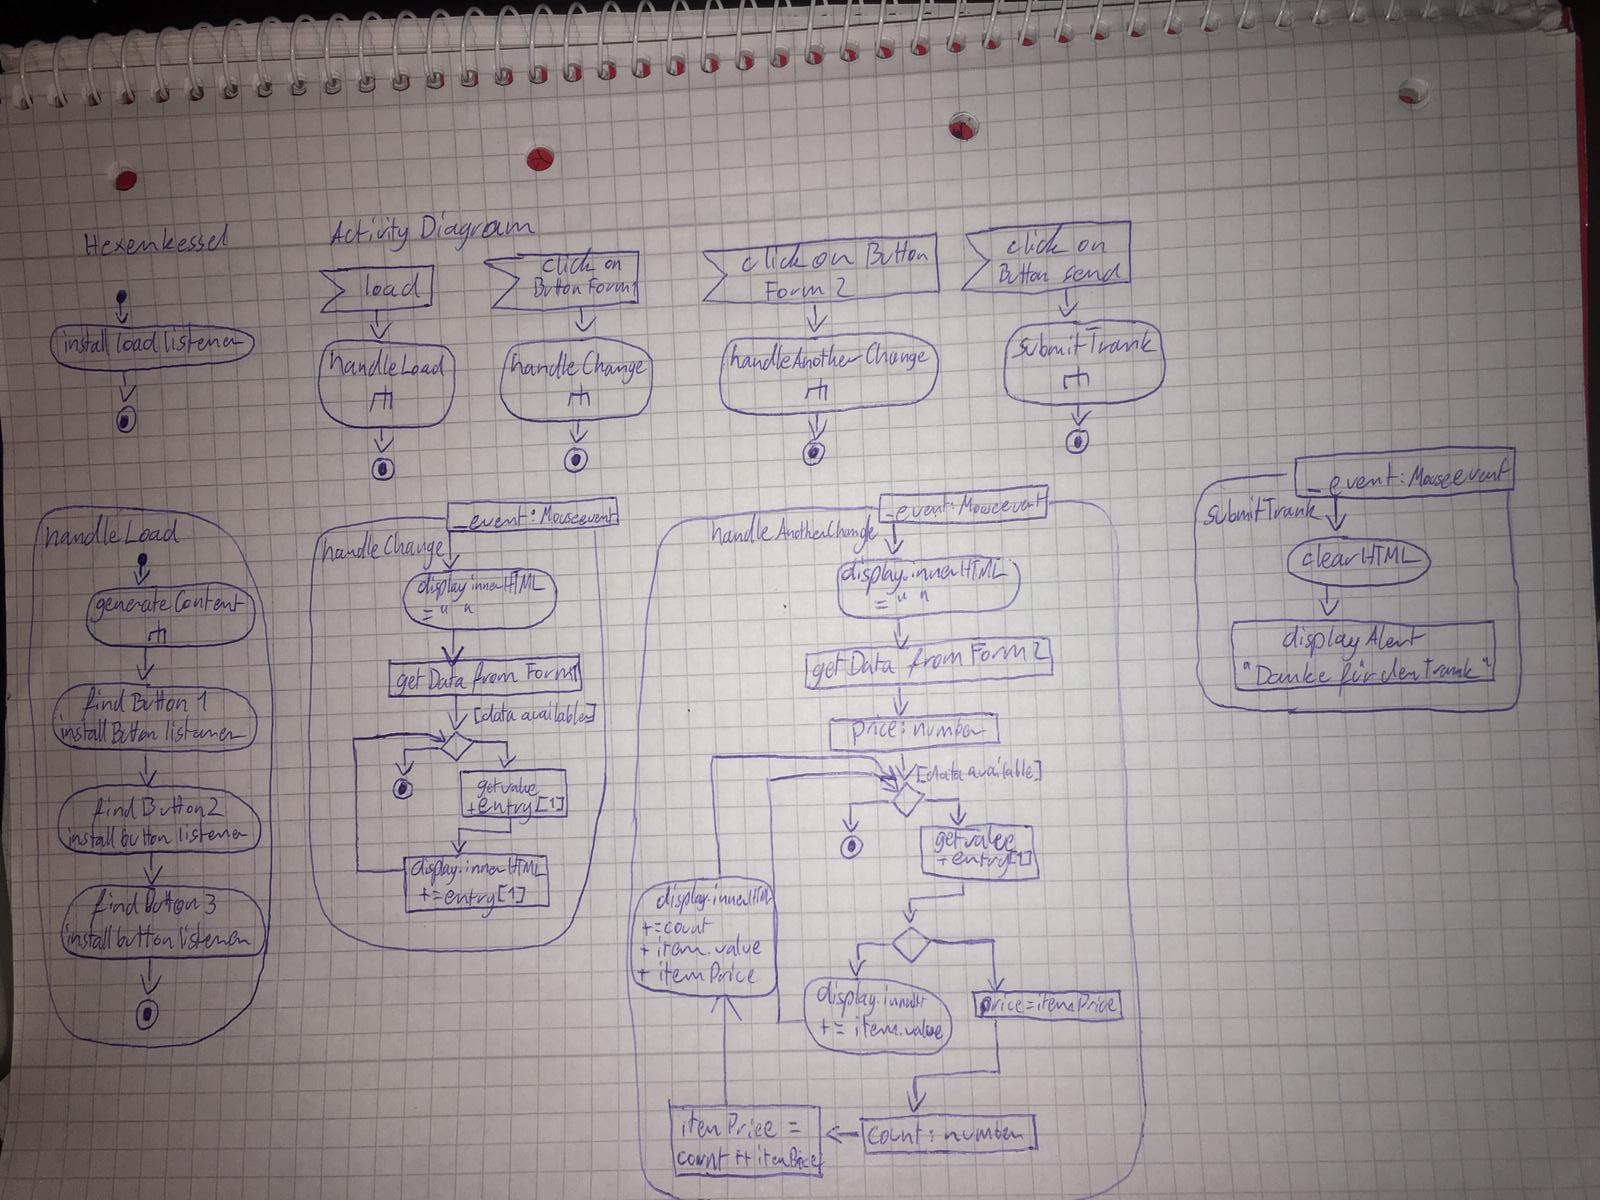 Hexenkessel
Activity Diagram
install load listener
load
handleLoad
click on
Button Form1
handleChange
click on Button
Form 2
handleAnotherChange
click on
Button send
submitTrank
handleLoad
generateContent
find Button 1
install Button listener
find Button2
install button listener
find Button 3
install button listener
_event: Mouseevent
handleChange
display.innerHTML
= " "
getData from Form1
[data available]
getvalue
+entry[1]
display.innerHTML
+=entry[1]
_event: Mouseevent
handleAnotherChange
display.innerHTML
= " "
getData from Form 2
price: number
[data available]
getvalue
+entry[1]
display.innerHTML
+=count
+ item.value
+ itemPrice
display.inner
+= item.value
price=itemPrice
count: number
itemPrice =
count ** itemPrice
_event: Mouseevent
submitTrank
clearHTML
displayAlert
"Danke für den Trank"